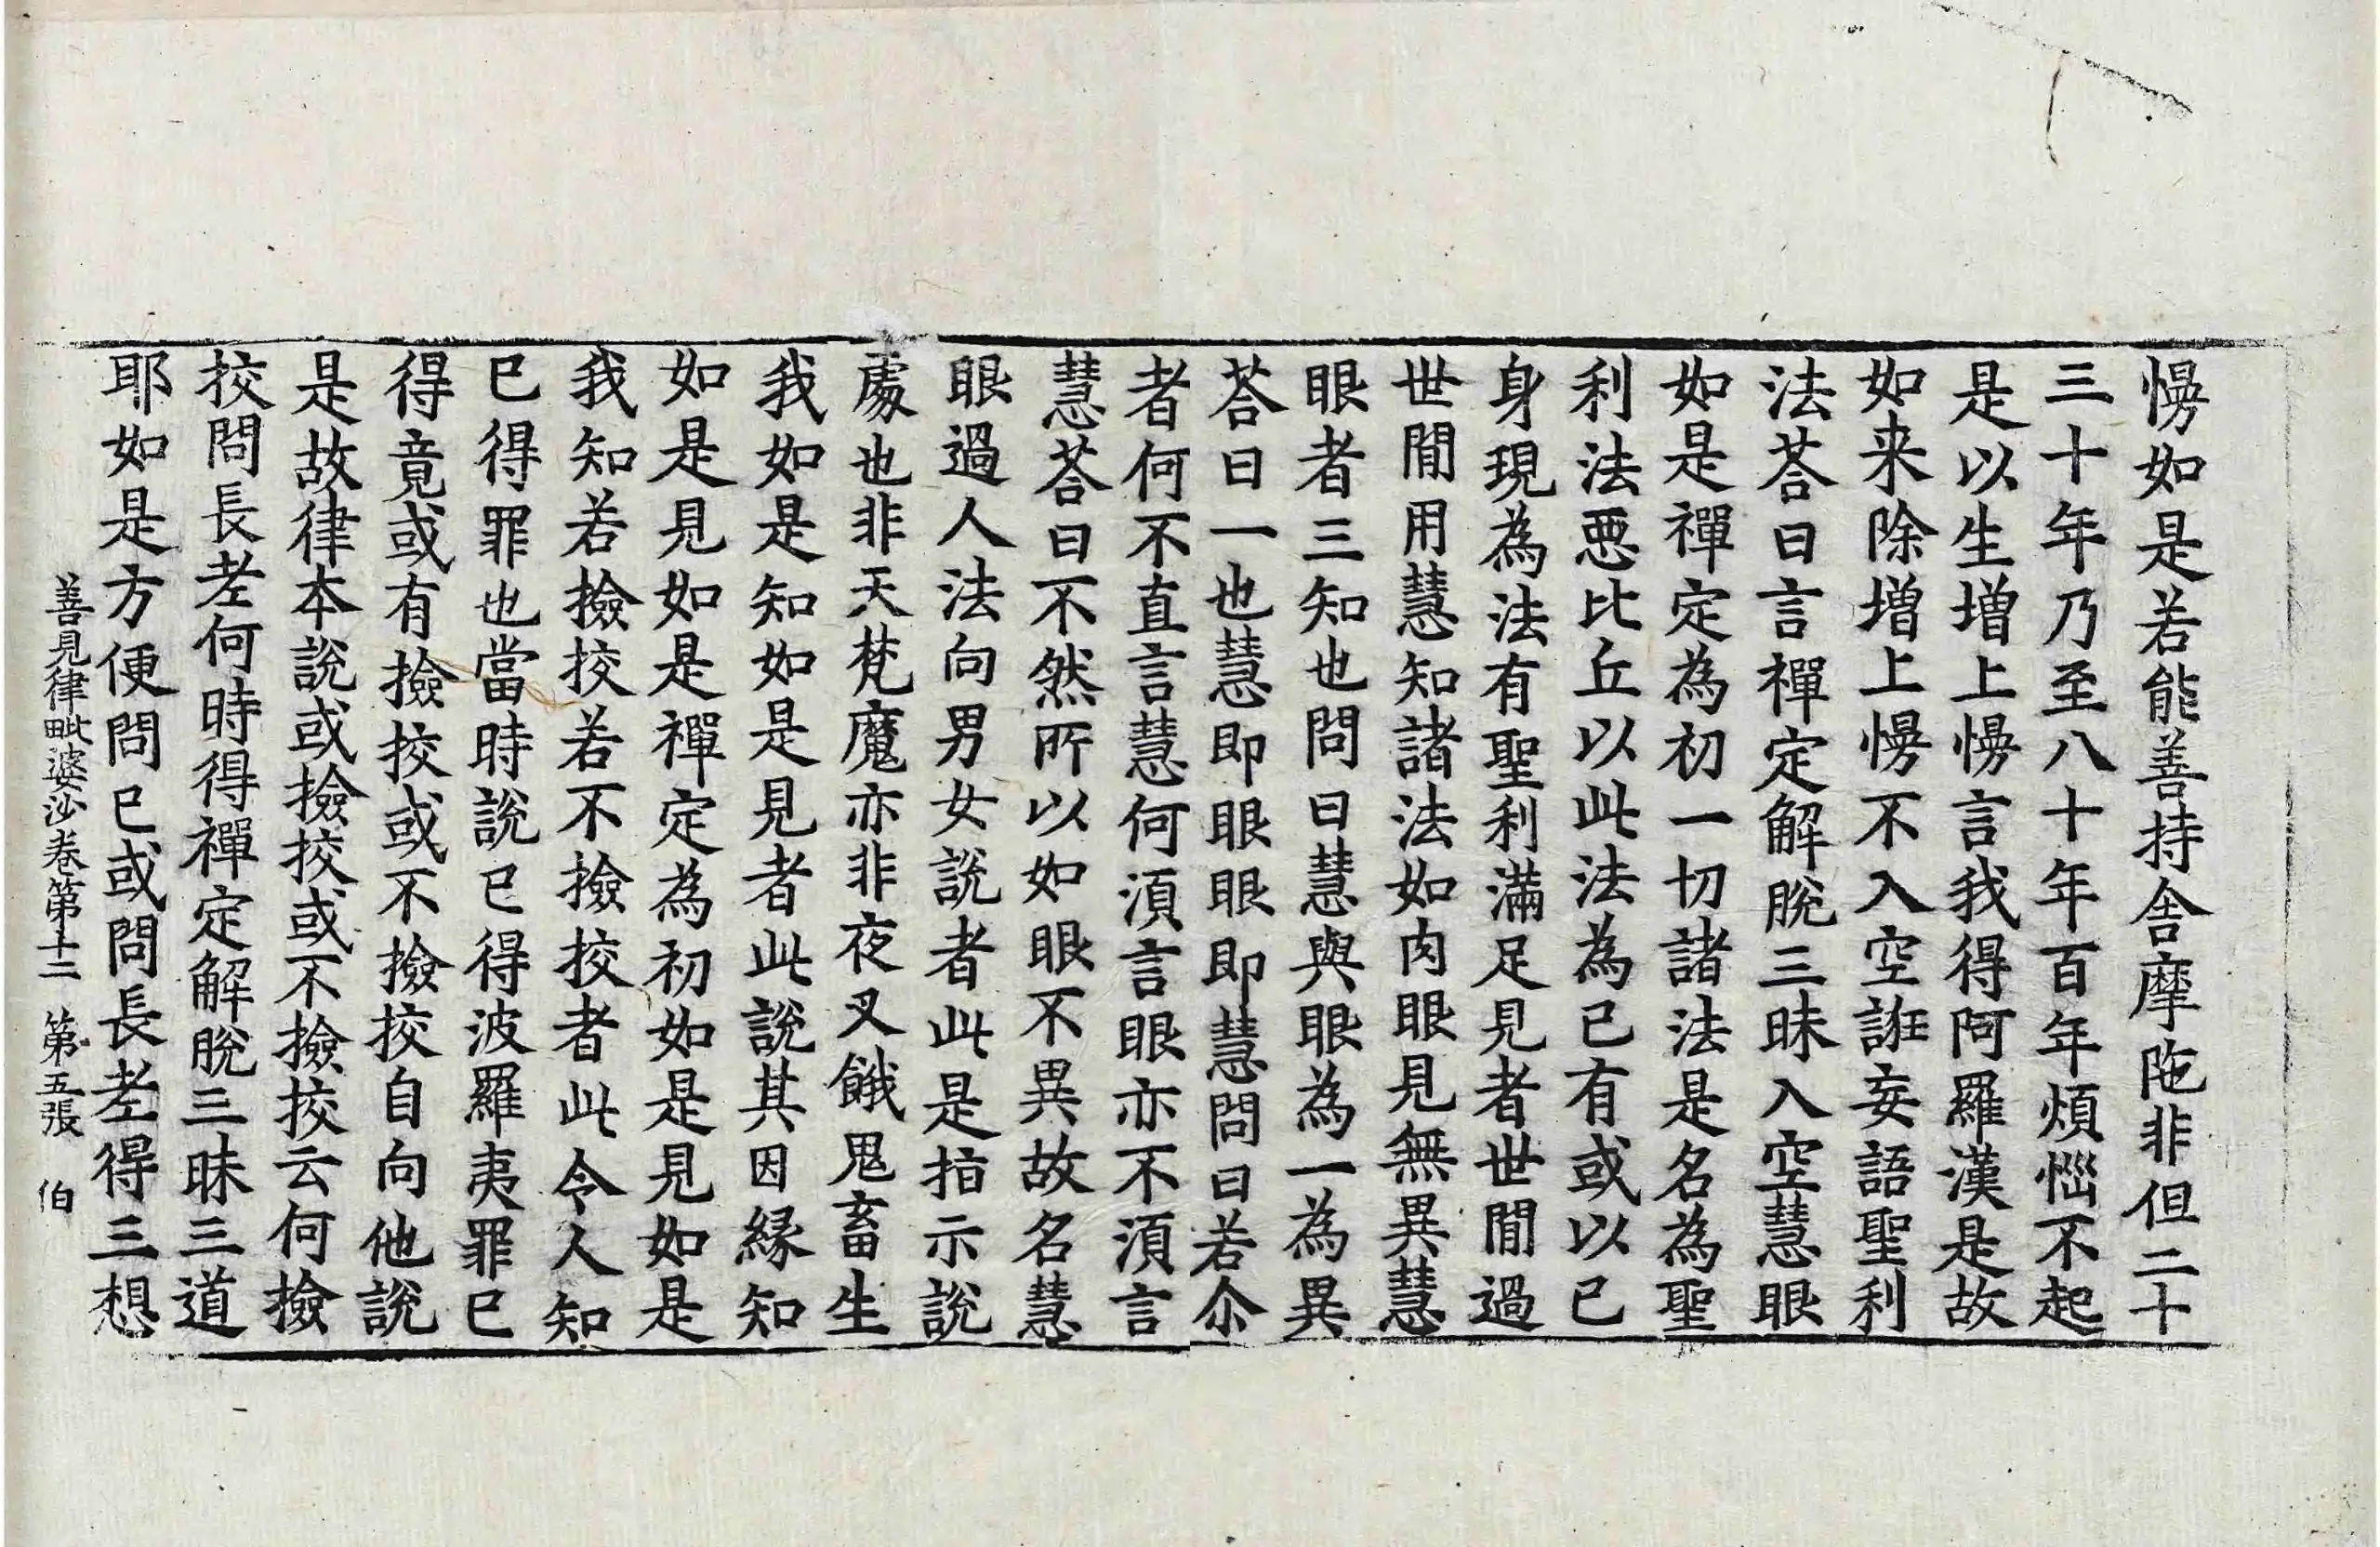 慢如是若能善持舍摩陁非但二十
三十年乃至八十年百年煩惱不起
是以生増上慢言我得阿羅漢是故
如来除増上慢不入空誑妄語聖利
法荅曰言禪定解脫三昧入空慧眼
如是禪定為初一切諸法是名為聖
利法惡比丘以此法為已有或以已
身現為法有聖利滿足見者世間過
世間用慧知諸法如肉眼見無異慧
眼者三知也問曰慧與眼為一為異
荅曰一也慧即眼眼即慧問曰若尒
者何不直言慧何湏言眼亦不湏言
慧荅曰不然所以如眼不異故名慧
眼過人法向男女說者此是指示說
處也非天梵魔亦非夜叉餓鬼畜生
我如是知如是見者此說其因縁知
如是見如是禪定為初如是見如是
我知若撿挍若不撿挍者此令人知
已得罪也當時說已得波羅夷罪已
得竟或有撿挍或不撿挍自向他說
是故律本說或撿挍或不撿挍云何撿
挍問長老何時得禪定解脫三昧三道
耶如是方便問已或問長老得三想
善見律毗婆沙卷第十二 第五張 伯